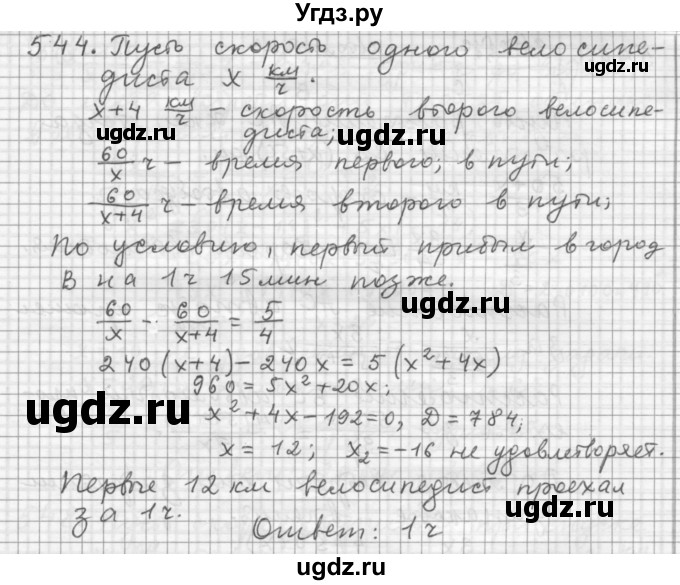 Угдз.ру
544. Пусть скорость одного велосипе-
диста x км/ч.
x+4 км/ч – скорость второго велосипе-
диста;
60/x ч – время первого; в пути;
60/(x+4) ч – время второго в пути;
По условию, первый прибыл в город
В на 1ч 15мин позже.
60/x - 60/(x+4) = 5/4
240(x+4) – 240x = 5(x²+4x)
960 = 5x²+20x;
x²+4x–192=0, D=784;
x = 12; x₂=–16 не удовлетворяет.
Первые 12 км велосипедист проехал
за 1ч.
Ответ: 1ч
ugdz.ru
ugdz.ru
ugdz.ru
ugdz.ru
ugdz.ru
ugdz.ru
ugdz.ru
ugdz.ru
ugdz.ru